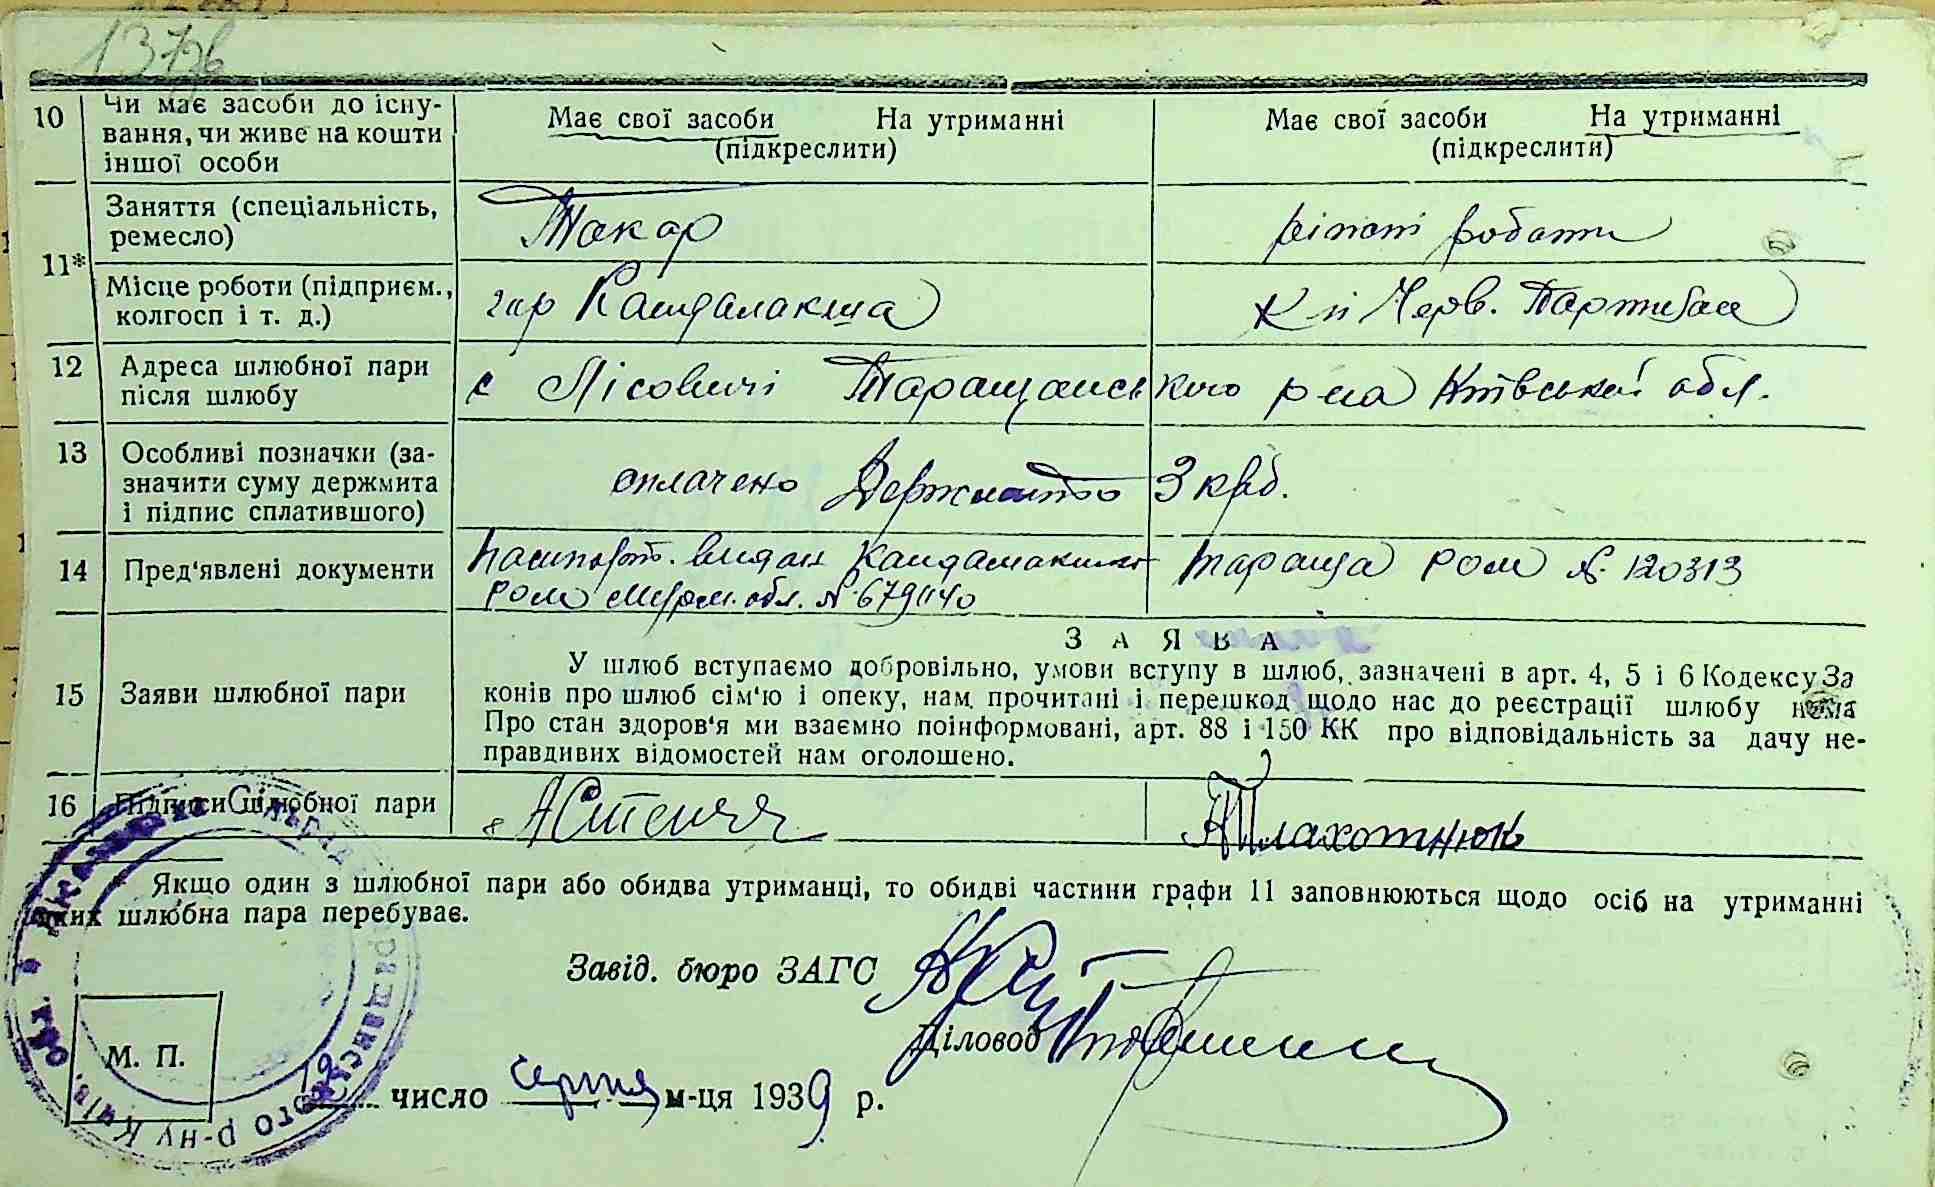 137зв
10 Чи має засоби до існу-
вання, чи живе на кошти
іншої особи
Має свої засоби На утриманні
(підкреслити)
Має свої засоби На утриманні
(підкреслити)
11*
Заняття (спеціальність,
ремесло)
Токар
різні роботи
Місце роботи (підприєм.,
колгосп і т. д.)
гор Кандалакша
К-п Черв. Партизан
12 Адреса шлюбної пари
після шлюбу
с Лісовичі Таращанського р-на Київської обл.
13 Особливі позначки (за-
значити суму держмита
і підпис сплатившого)
оплачено Держмито 3 крб.
14 Пред'явлені документи
Паспорт. видан Кандалакшск
РОМ Мурм. обл. №679140
Тараща РОМ № 120313
15 Заяви шлюбної пари
ЗАЯВА
У шлюб вступаємо добровільно, умови вступу в шлюб, зазначені в арт. 4, 5 і 6 Кодексу За
конів про шлюб сім'ю і опеку, нам прочитані і перешкод щодо нас до реєстрації шлюбу нема
Про стан здоров'я ми взаємно поінформовані, арт. 88 і 150 КК про відповідальність за дачу не-
правдивих відомостей нам оголошено.
16 Підписи шлюбної пари
Плахотнюк
* Якщо один з шлюбної пари або обидва утриманці, то обидві частини графи 11 заповнюються щодо осіб на утриманні
яких шлюбна пара перебуває.
Завід. бюро ЗАГС
Діловод
М. П.
12 число серпня м-ця 1939 р.
р-ну Київ. обл.